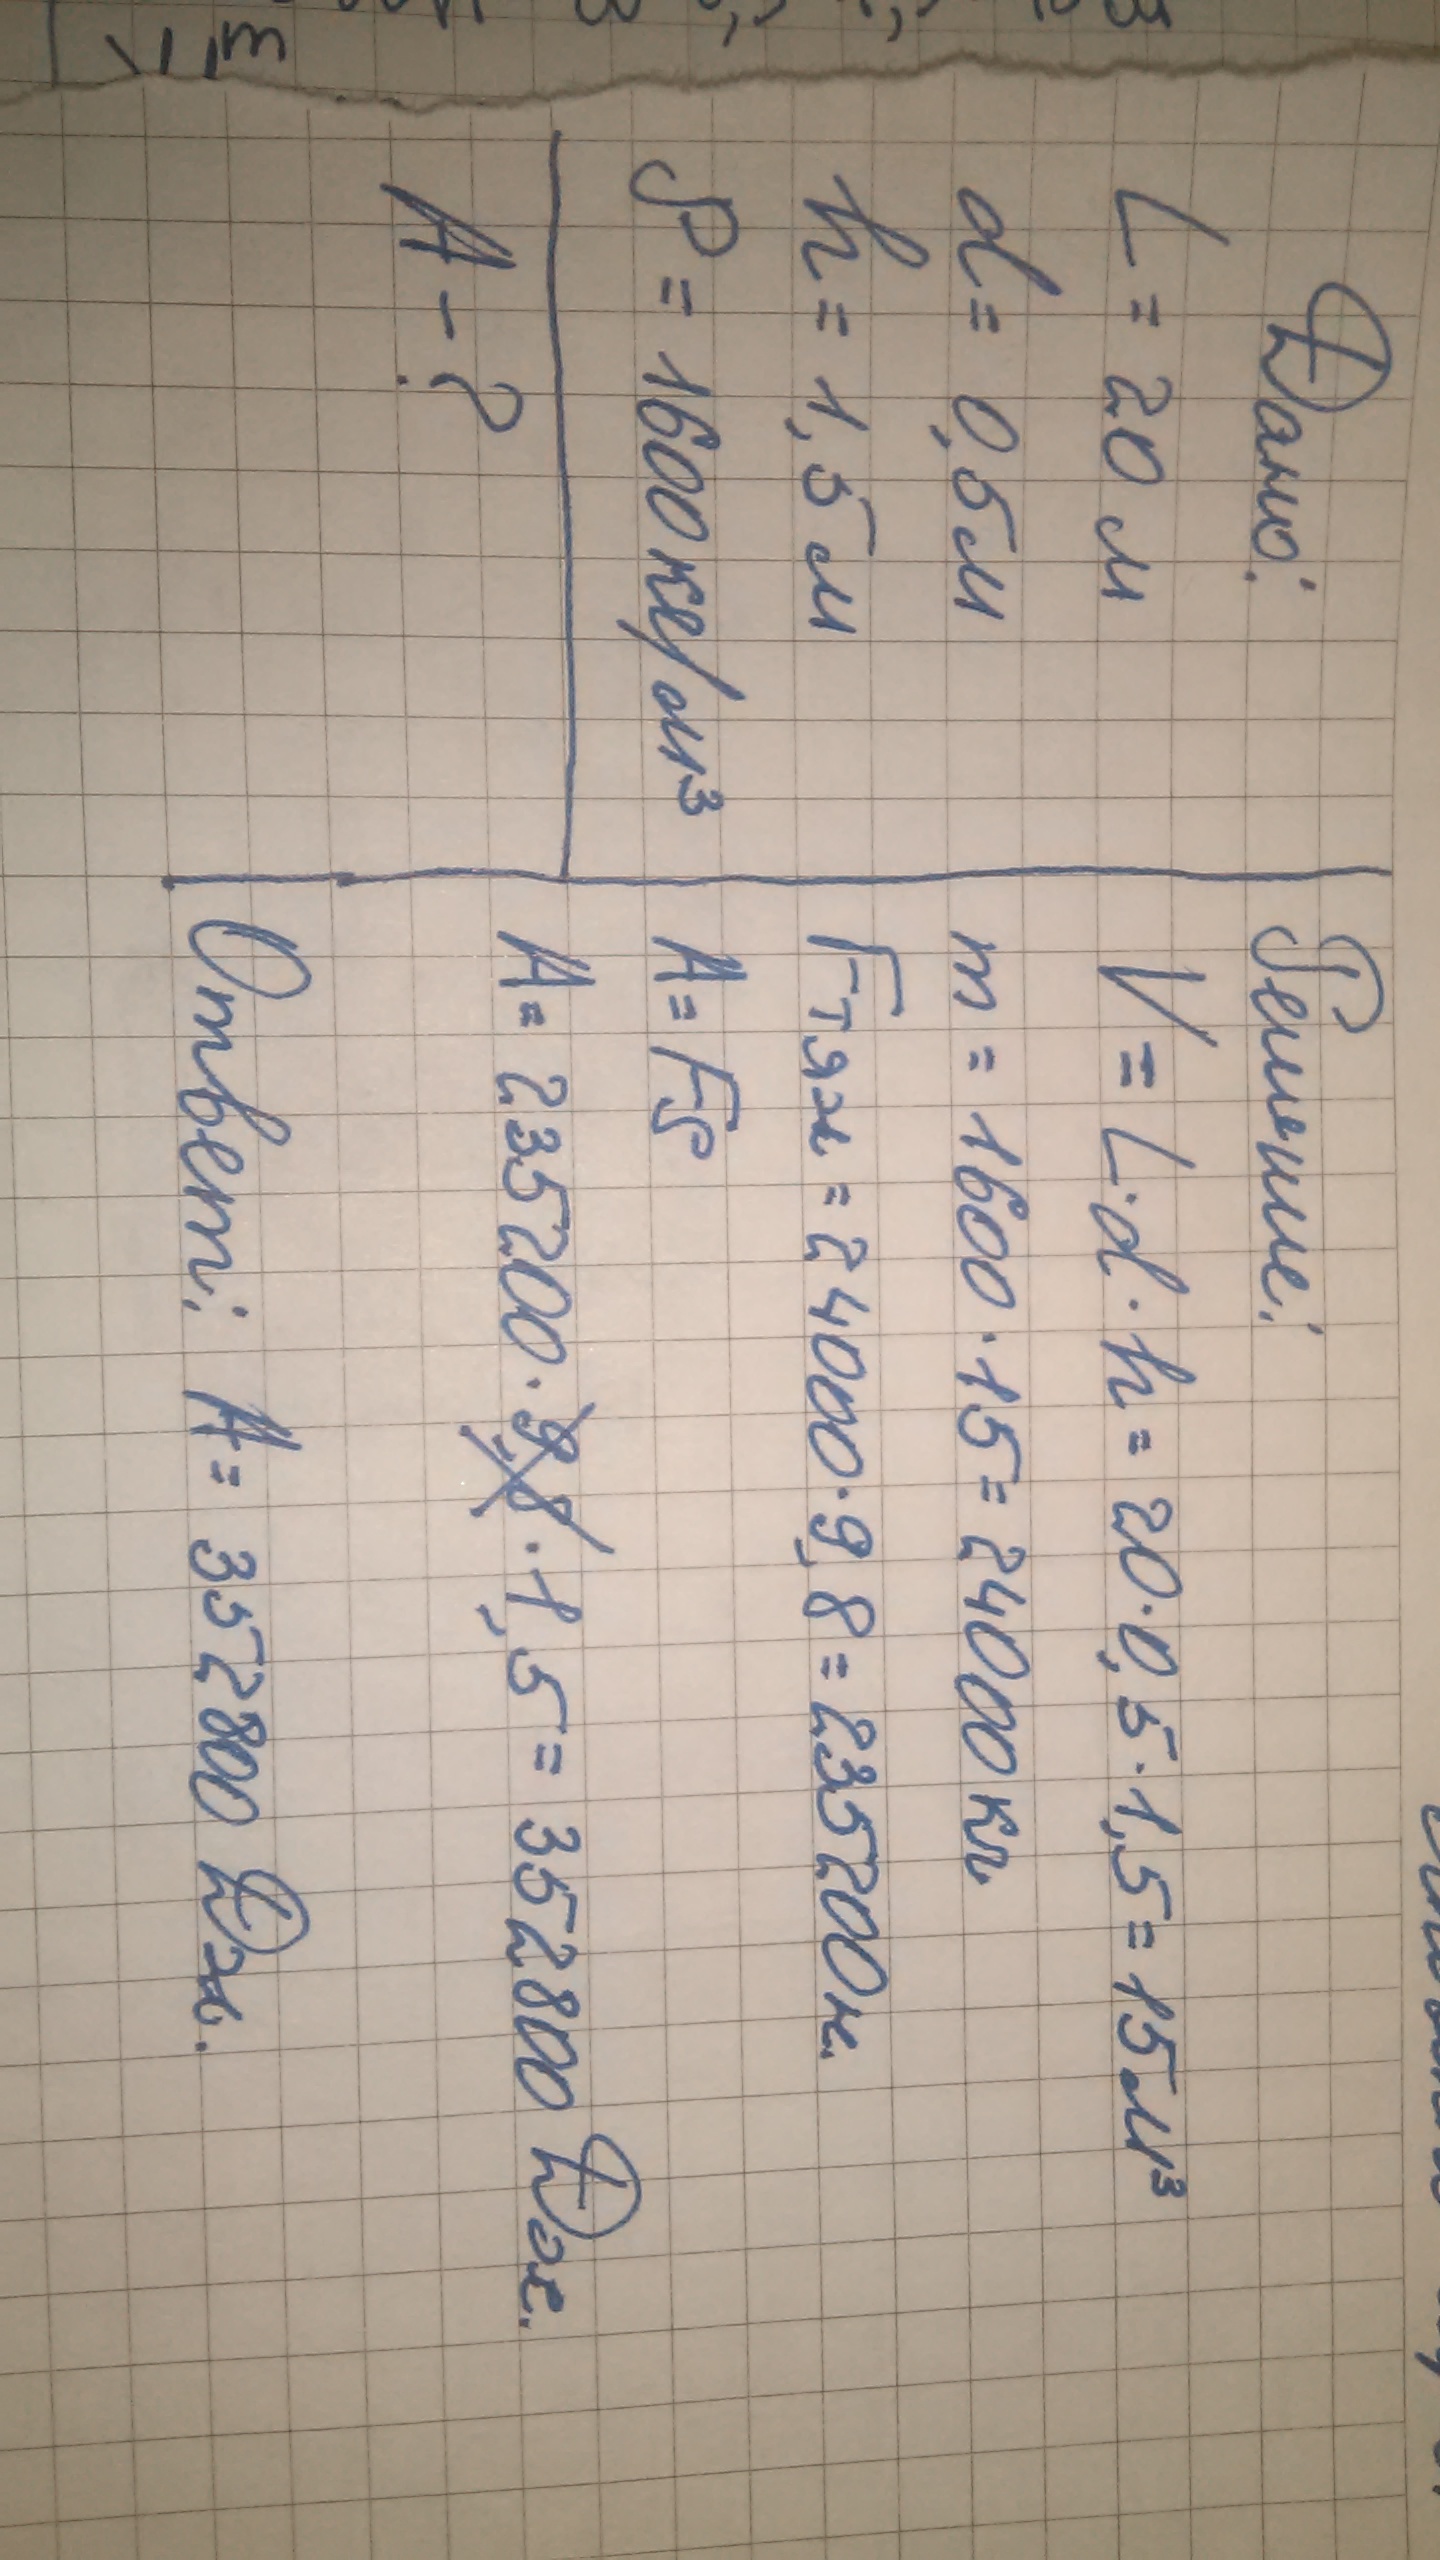 Дано:
L = 20 м
d = 0,5м
h = 1,5 м
ρ = 1600кг/м³
A - ?
Решение:
V = L·d·h = 20·0,5·1,5 = 15м³
m = 1600·15 = 24000 кг.
Fтяж = 24000·9,8 = 235200н.
A = FS
A = 235200·9,8·1,5 = 352800 Дж.
Ответ: A = 352800 Дж.